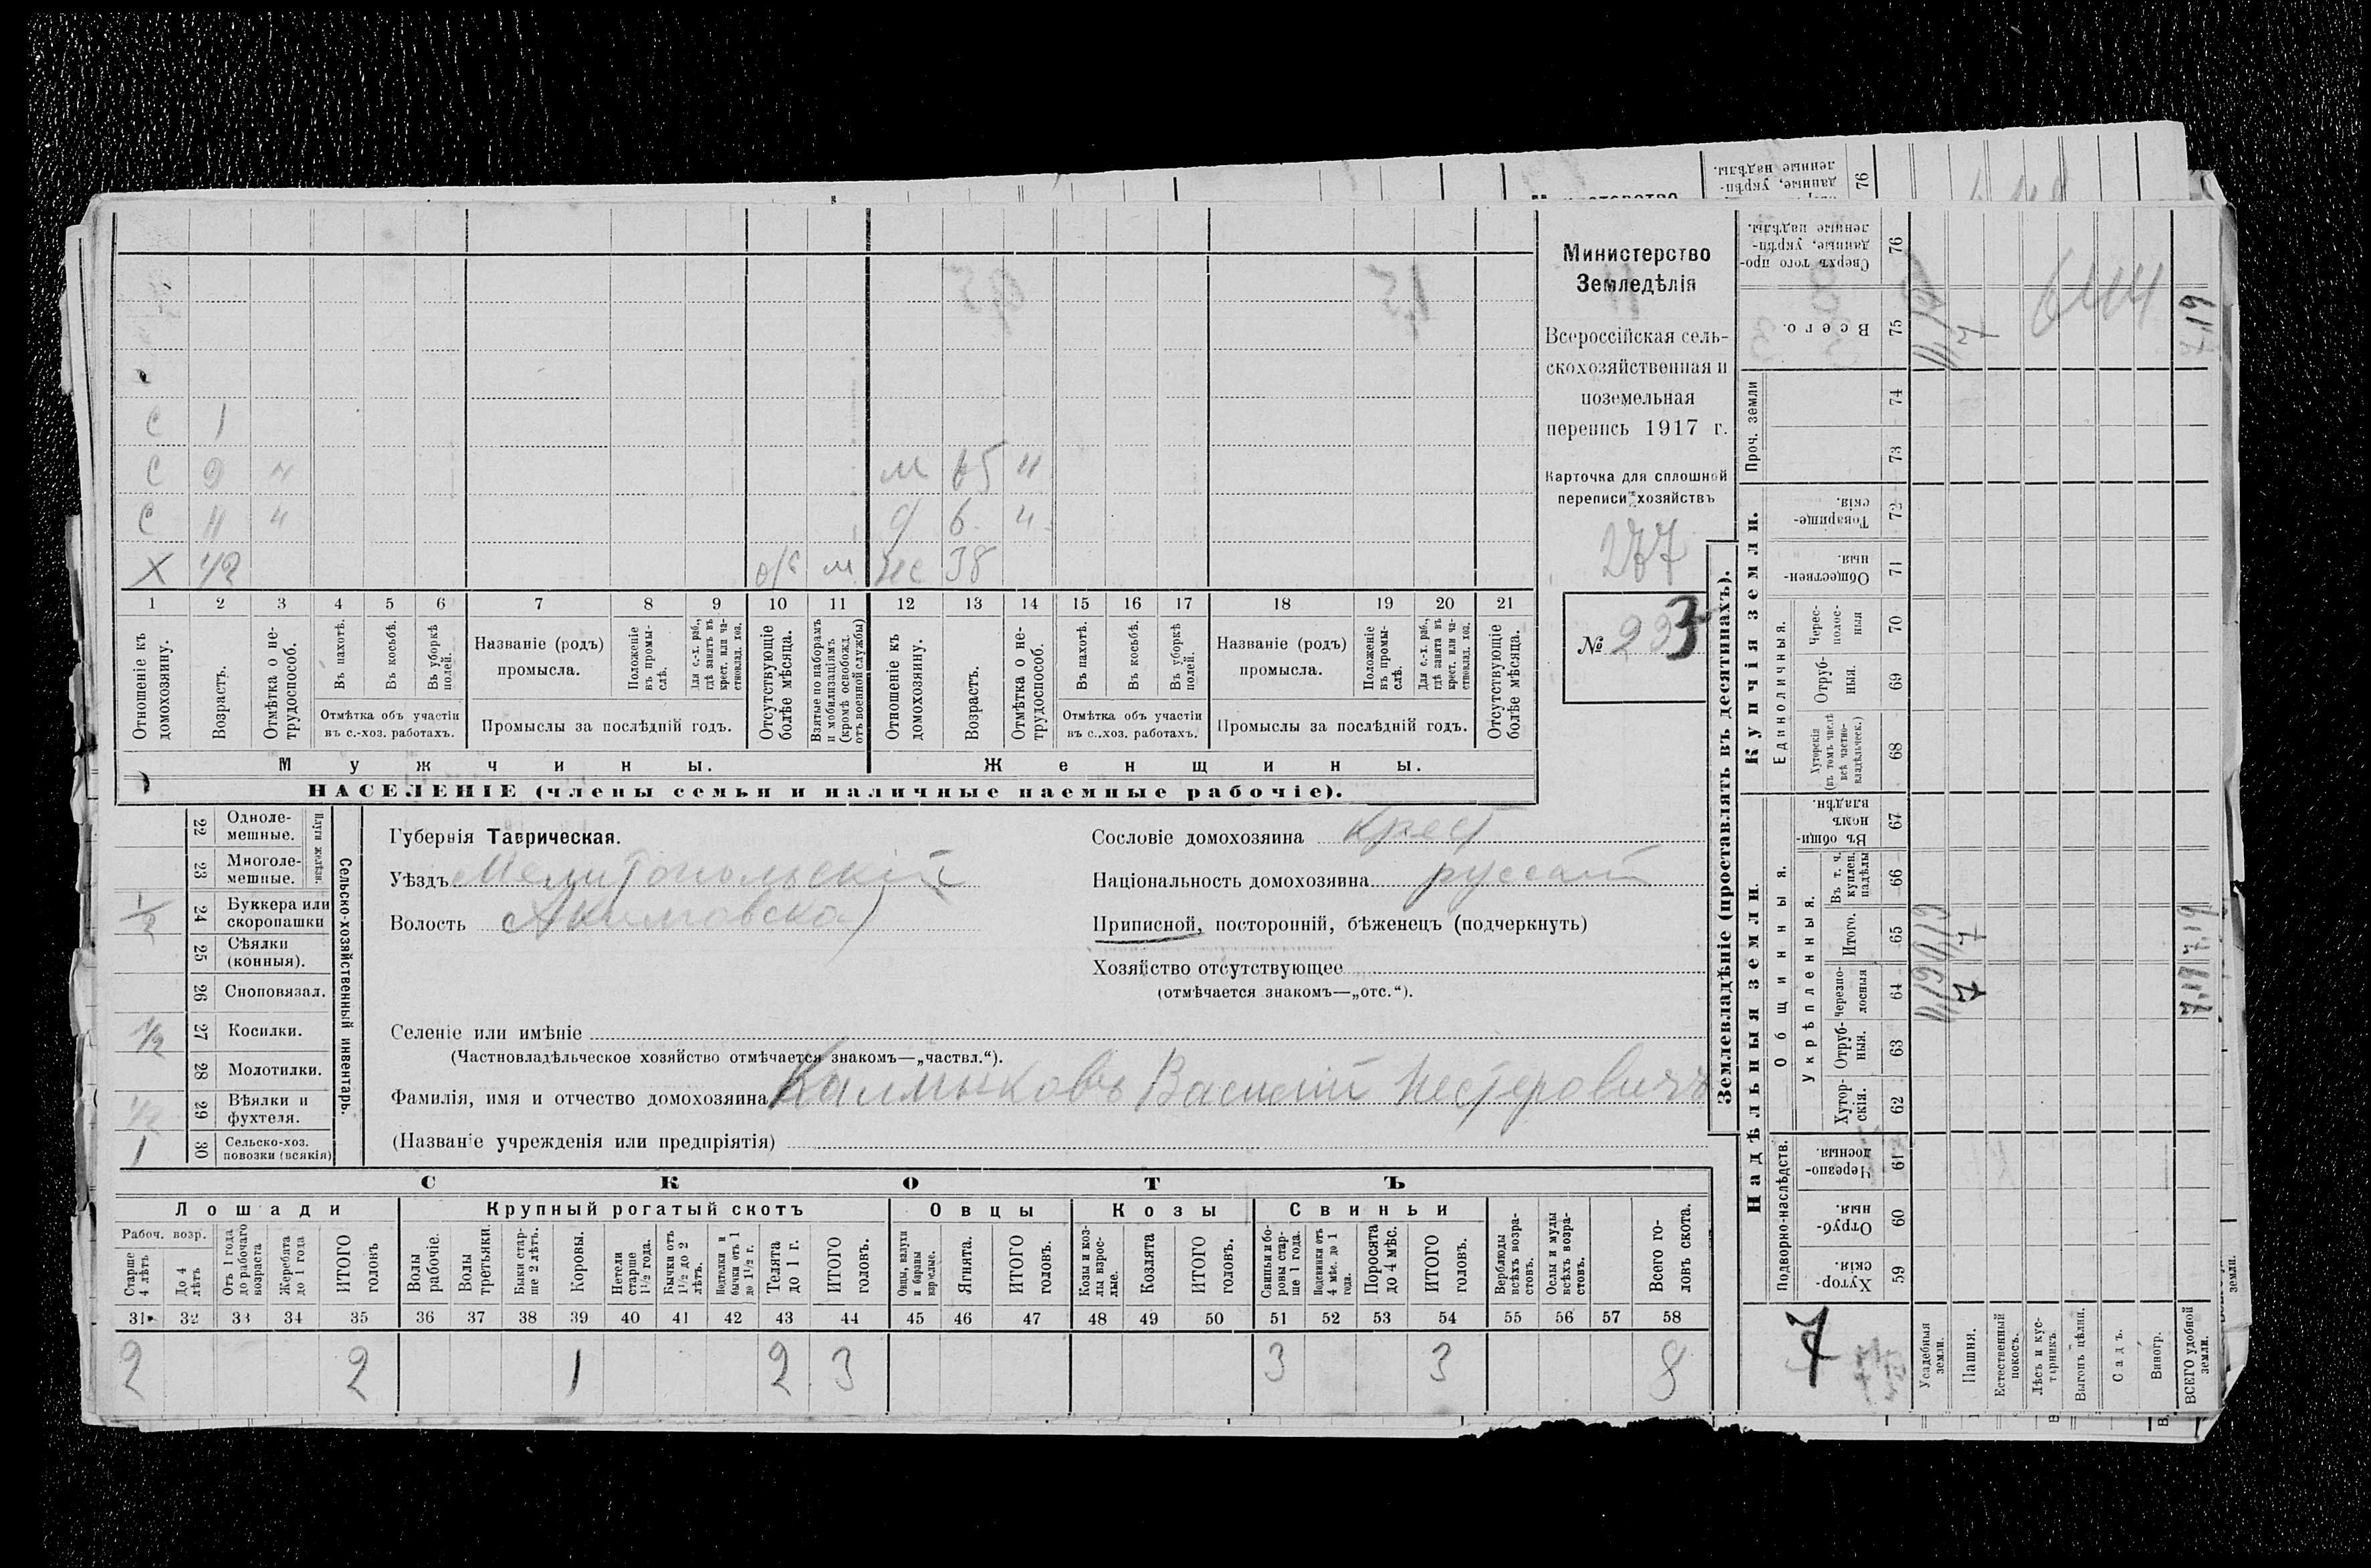 Министерство
Земледѣлія
Всероссійская сель-
скохозяйственная и
поземельная
перепись 1917 г.
Карточка для сплошной
переписи хозяйствъ
277
№ 223
С 1
С 9 "
С 11 "
Х 42
м 65 "
д 6 "
же 38
1 2 3 4 5 6 7 8 9 10 11 12 13 14 15 16 17 18 19 20 21
Отношеніе къ домохозяину.
Возрастъ.
Отмѣтка о не-трудоспособ.
Въ пахотѣ.
Въ косьбѣ.
Въ уборкѣ полей.
Отмѣтка объ участіи
въ с.-хоз. работахъ.
Названіе (родъ)
промысла.
Положеніе въ промы-слѣ.
Для с.-х. раб., гдѣ занятъ въ крест. или ча-стновлад. хоз.
Промыслы за послѣдній годъ.
Отсутствующіе болѣе мѣсяца.
Взятые по наборамъ и мобилизаціямъ (кромѣ освобожд. отъ военной службы)
Отношеніе къ домохозяину.
Возрастъ.
Отмѣтка о не-трудоспособ.
Въ пахотѣ.
Въ косьбѣ.
Въ уборкѣ полей.
Отмѣтка объ участіи
въ с.-хоз. работахъ.
Названіе (родъ)
промысла.
Положеніе въ промы-слѣ.
Для с.-х. раб., гдѣ занята въ крест. или ча-стновлад. хоз.
Промыслы за послѣдній годъ.
Отсутствующіе болѣе мѣсяца.
Мужчины.
Женщины.
НАСЕЛЕНІЕ (члены семьи и наличные наемные рабочіе).
Сельско-хозяйственный инвентарь.
Плуги желѣзн.
22 Одноле-мешные.
23 Многоле-мешные.
1/2 24 Буккера или скоропашки
25 Сѣялки (конныя).
26 Сноповязал.
1/2 27 Косилки.
28 Молотилки.
1/2 29 Вѣялки и фухтеля.
1 30 Сельско-хоз. повозки (всякія)
Губернія Таврическая.
Уѣздъ Мелитопольскій
Волость Акимовская
Сословіе домохозяина крест
Національность домохозяина русскій
Приписной, посторонній, бѣженецъ (подчеркнуть)
Хозяйство отсутствующее
(отмѣчается знакомъ—„отс.“).
Селеніе или имѣніе
(Частновладѣльческое хозяйство отмѣчается знакомъ—„частвл.“).
Фамилія, имя и отчество домохозяина Калмыковъ Василій Нестеровичъ
(Названіе учрежденія или предпріятія)
СКОТЪ
Лошади Крупный рогатый скотъ Овцы Козы Свиньи
Рабоч. возр.
Старше 4 лѣтъ
До 4 лѣтъ
Отъ 1 года до рабочаго возраста
Жеребята до 1 года
ИТОГО головъ
Волы рабочіе.
Волы третьяки.
Быки стар-ше 2 лѣтъ.
Коровы.
Нетели старше 1 1/2 года.
Бычки отъ 1 1/2 до 2 лѣтъ.
Подтелки и бычки отъ 1 до 1 1/2 г.
Телята до 1 г.
ИТОГО головъ.
Овцы, валухи и бараны взрослые.
Ягнята.
ИТОГО головъ.
Козы и коз-лы взрос-лые.
Козлята
ИТОГО головъ.
Свиньи и бо-ровы стар-ше 1 года.
Подсвинки отъ 4 мѣс. до 1 года.
Поросята до 4 мѣс.
ИТОГО головъ.
Верблюды всѣхъ возра-стовъ.
Ослы и мулы всѣхъ возра-стовъ.
Всего го-ловъ скота.
31 32 33 34 35 36 37 38 39 40 41 42 43 44 45 46 47 48 49 50 51 52 53 54 55 56 57 58
2 2 1 2 3 3 3 8
Землевладѣніе (проставлять въ десятинахъ).
Надѣльныя земли.
Купчія земли.
Проч. земли
Подворно-наслѣдств.
Общинныя.
Укрѣпленныя.
Единоличныя.
Хутор-скія. 59
Отруб-ныя. 60
Черезпо-лосныя. 61
Хутор-скія. 62
Отруб-ныя. 63
Черезпо-лосныя 64
Итого. 65
Въ т. ч. куплен. надѣлы 66
Въ общин-номъ владѣн. 67
Хуторскія (въ томъ числѣ всѣ частно-владѣльческ.) 68
Отруб-ныя. 69
Черес-полос-ныя 70
Обществен-ныя. 71
Товарище-скія. 72
73
74
Всего. 75
Сверхъ того про-данные, укрѣп-ленные надѣлы. 76
7
Усадебныя земли.
Пашня.
Естественный покосъ.
Лѣсъ и кус-тарникъ.
Выгонъ цѣлина.
Садъ.
Виногр.
ВСЕГО удобной земли.
7
7
7